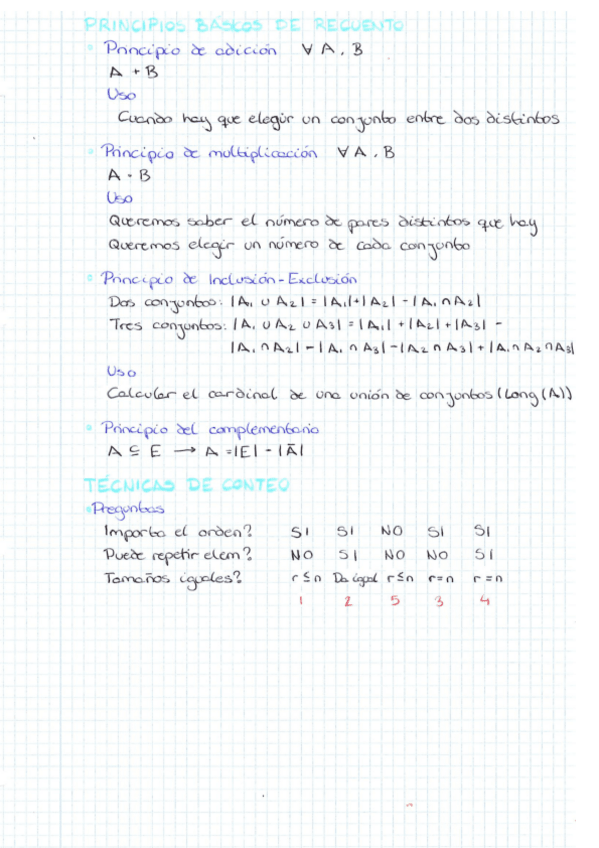 PRINCIPIOS BÁSICOS DE RECUENTO
Principio de adición ∀ A, B
A + B
Uso
Cuando hay que elegir un conjunto entre dos distintos
Principio de multiplicación ∀ A, B
A · B
Uso
Queremos saber el número de pares distintos que hay
Queremos elegir un número de cada conjunto
Principio de Inclusión-Exclusión
Dos conjuntos: |A₁ ∪ A₂| = |A₁|+|A₂| - |A₁ ∩ A₂|
Tres conjuntos: |A₁ ∪ A₂ ∪ A₃| = |A₁| + |A₂| + |A₃| -
|A₁ ∩ A₂| - |A₁ ∩ A₃| - |A₂ ∩ A₃| + |A₁ ∩ A₂ ∩ A₃|
Uso
Calcular el cardinal de una unión de conjuntos (Long(A))
Principio del complementario
A ⊆ E → A = |E| - |Ā|
TÉCNICAS DE CONTEO
Preguntas
Importa el orden? SI SI NO SI SI
Puede repetir elem? NO SI NO NO SI
Tamaños iguales? r ≤ n Da igual r ≤ n r = n r = n
1 2 5 3 4